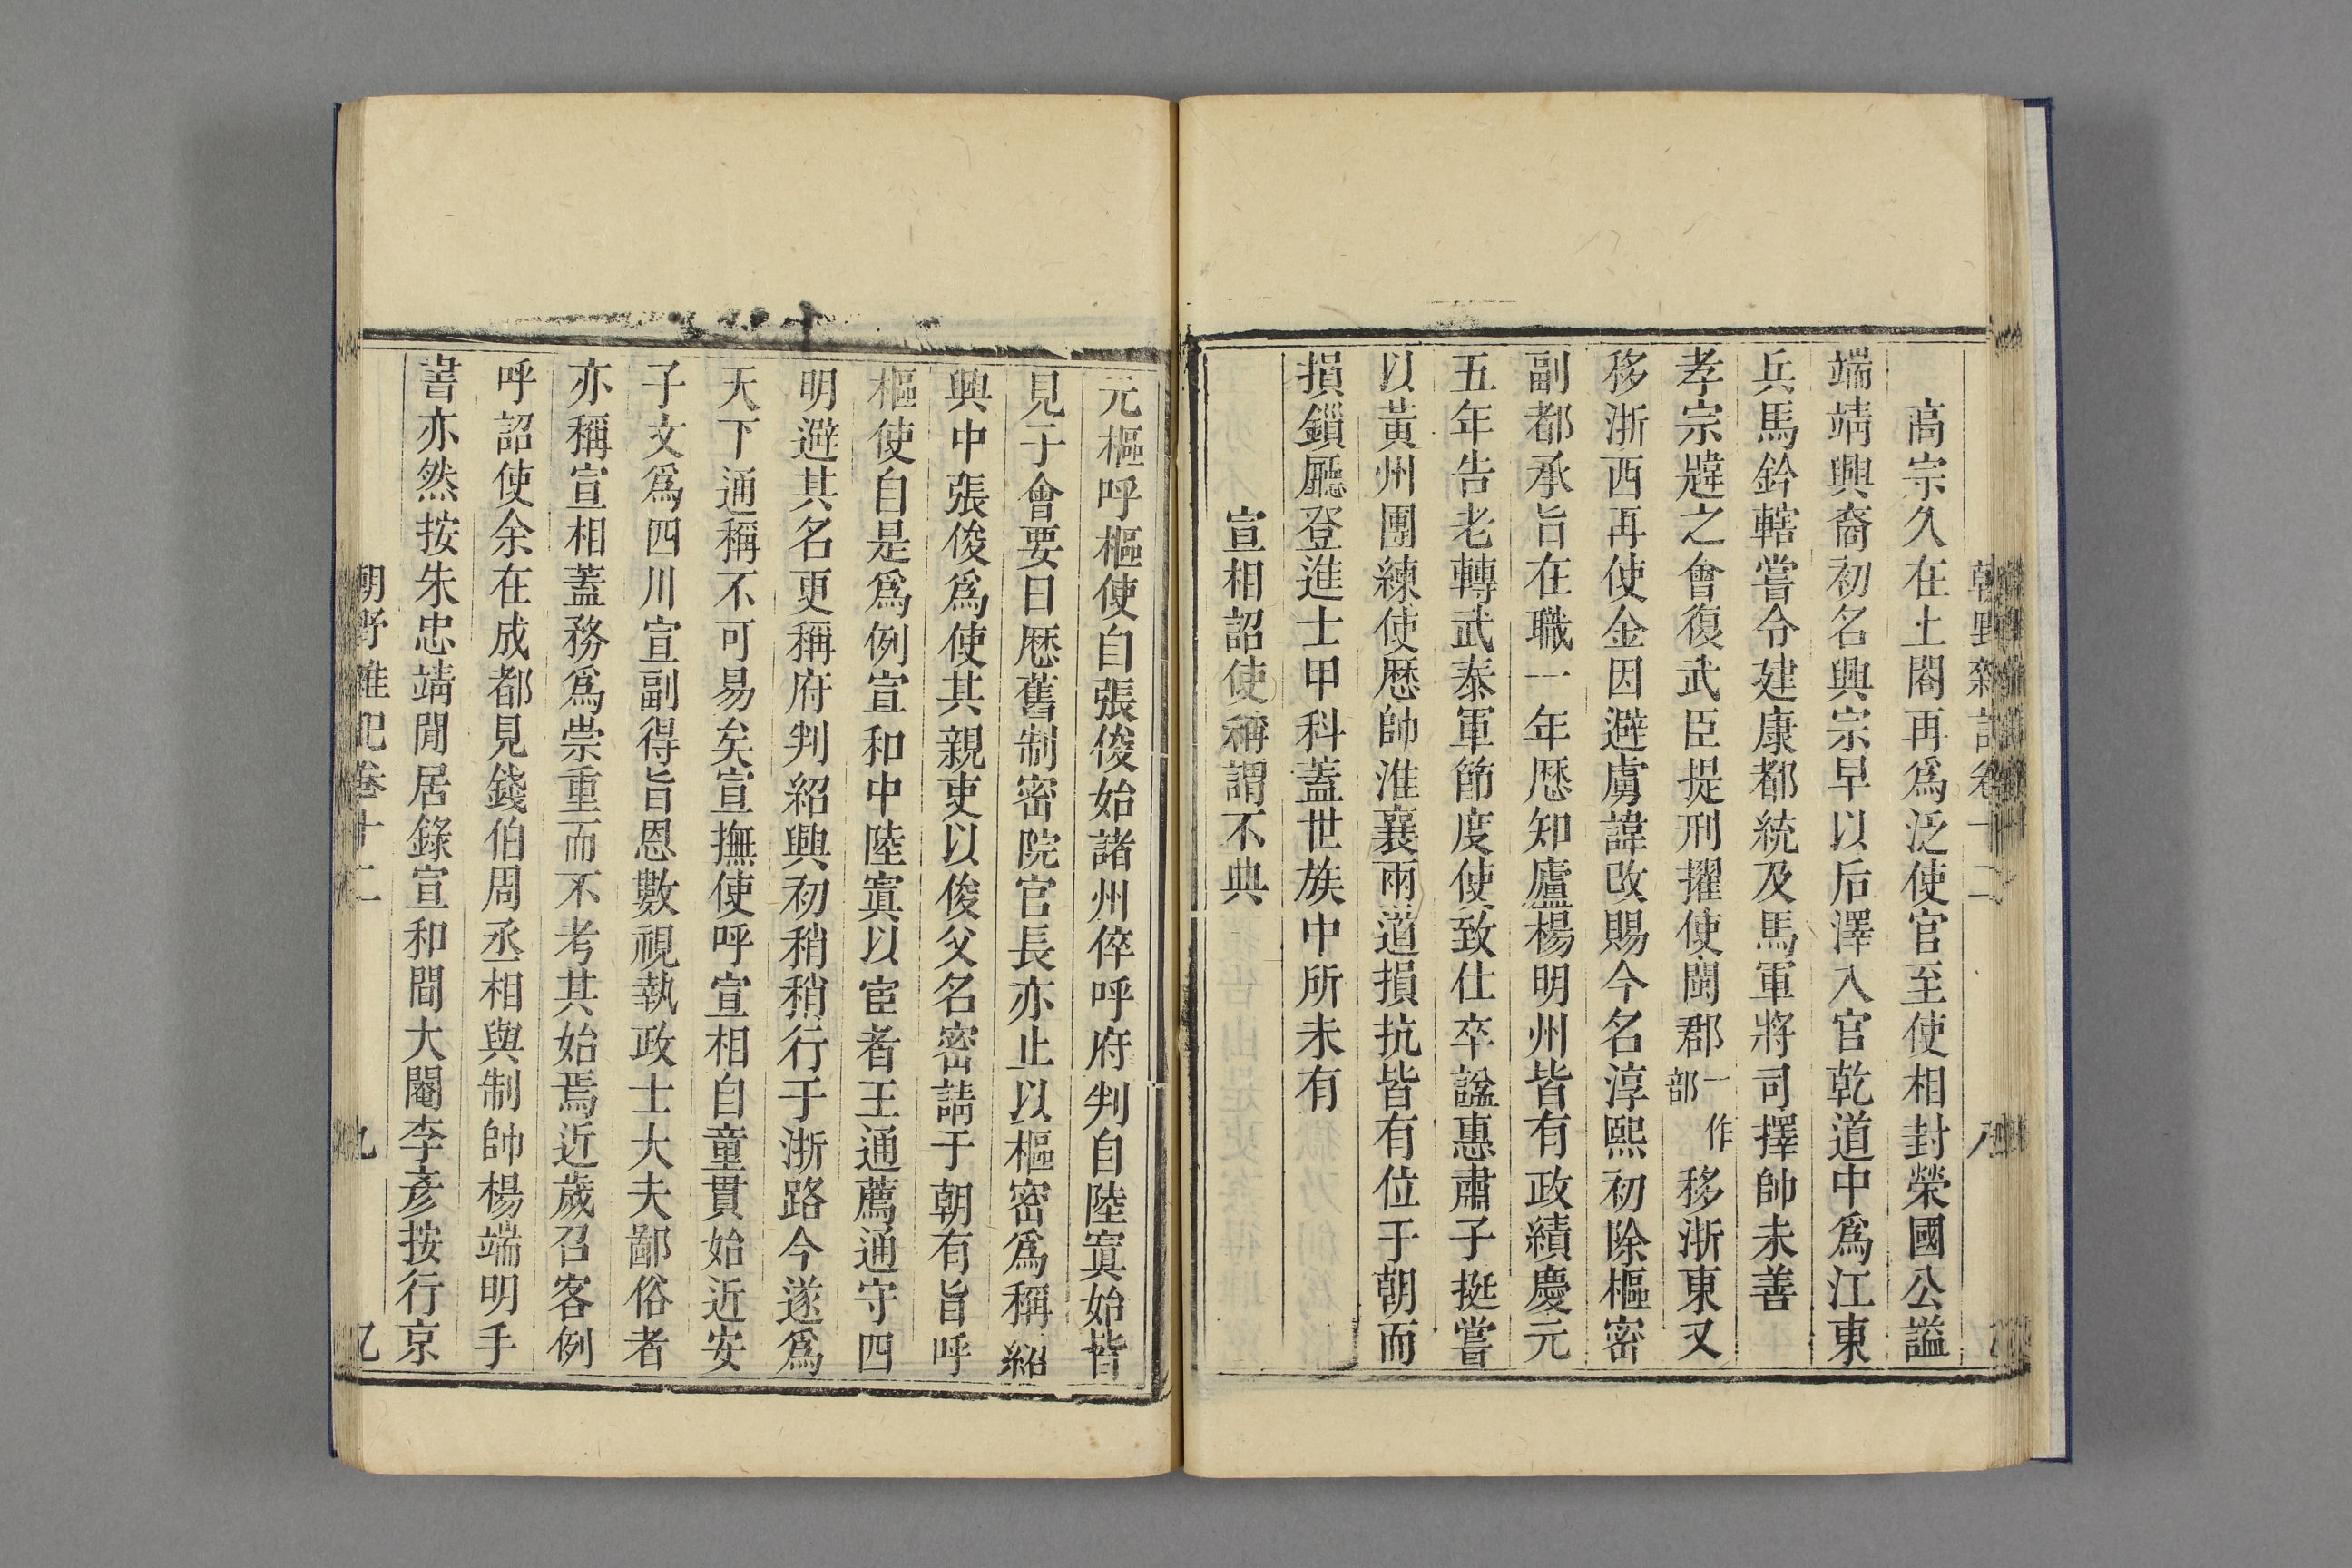 朝野雜記卷十二 八
高宗久在上閤再爲泛使官至使相封榮國公謚
端靖興裔初名興宗早以后澤入官乾道中爲江東
兵馬鈐轄嘗令建康都統及馬軍將司擇帥未善
孝宗韙之會復武臣提刑擢使閩郡一作部移浙東又
移浙西再使金因避虜諱改賜今名淳熙初除樞密
副都承旨在職一年歷知廬楊明州皆有政績慶元
五年告老轉武泰軍節度使致仕卒諡惠肅子挺嘗
以黃州團練使歷帥淮襄兩道損抗皆有位于朝而
損鎻廳登進士甲科蓋世族中所未有
宣相詔使稱謂不典
元樞呼樞使自張俊始諸州倅呼府判自陸寘始皆
見于會要日歷舊制密院官長亦止以樞密爲稱紹
興中張俊爲使其親吏以俊父名密請于朝有旨呼
樞使自是爲例宣和中陸寘以宦者王通薦通守四
明避其名更稱府判紹興初稍稍行于浙路今遂爲
天下通稱不可易矣宣撫使呼宣相自童貫始近安
子文爲四川宣副得旨恩數視執政士大夫鄙俗者
亦稱宣相蓋務爲崇重而不考其始焉近歲召客例
呼詔使余在成都見錢伯周丞相與制帥楊端明手
書亦然按朱忠靖閒居錄宣和間大閹李彥按行京
朝野雜記卷十二 九